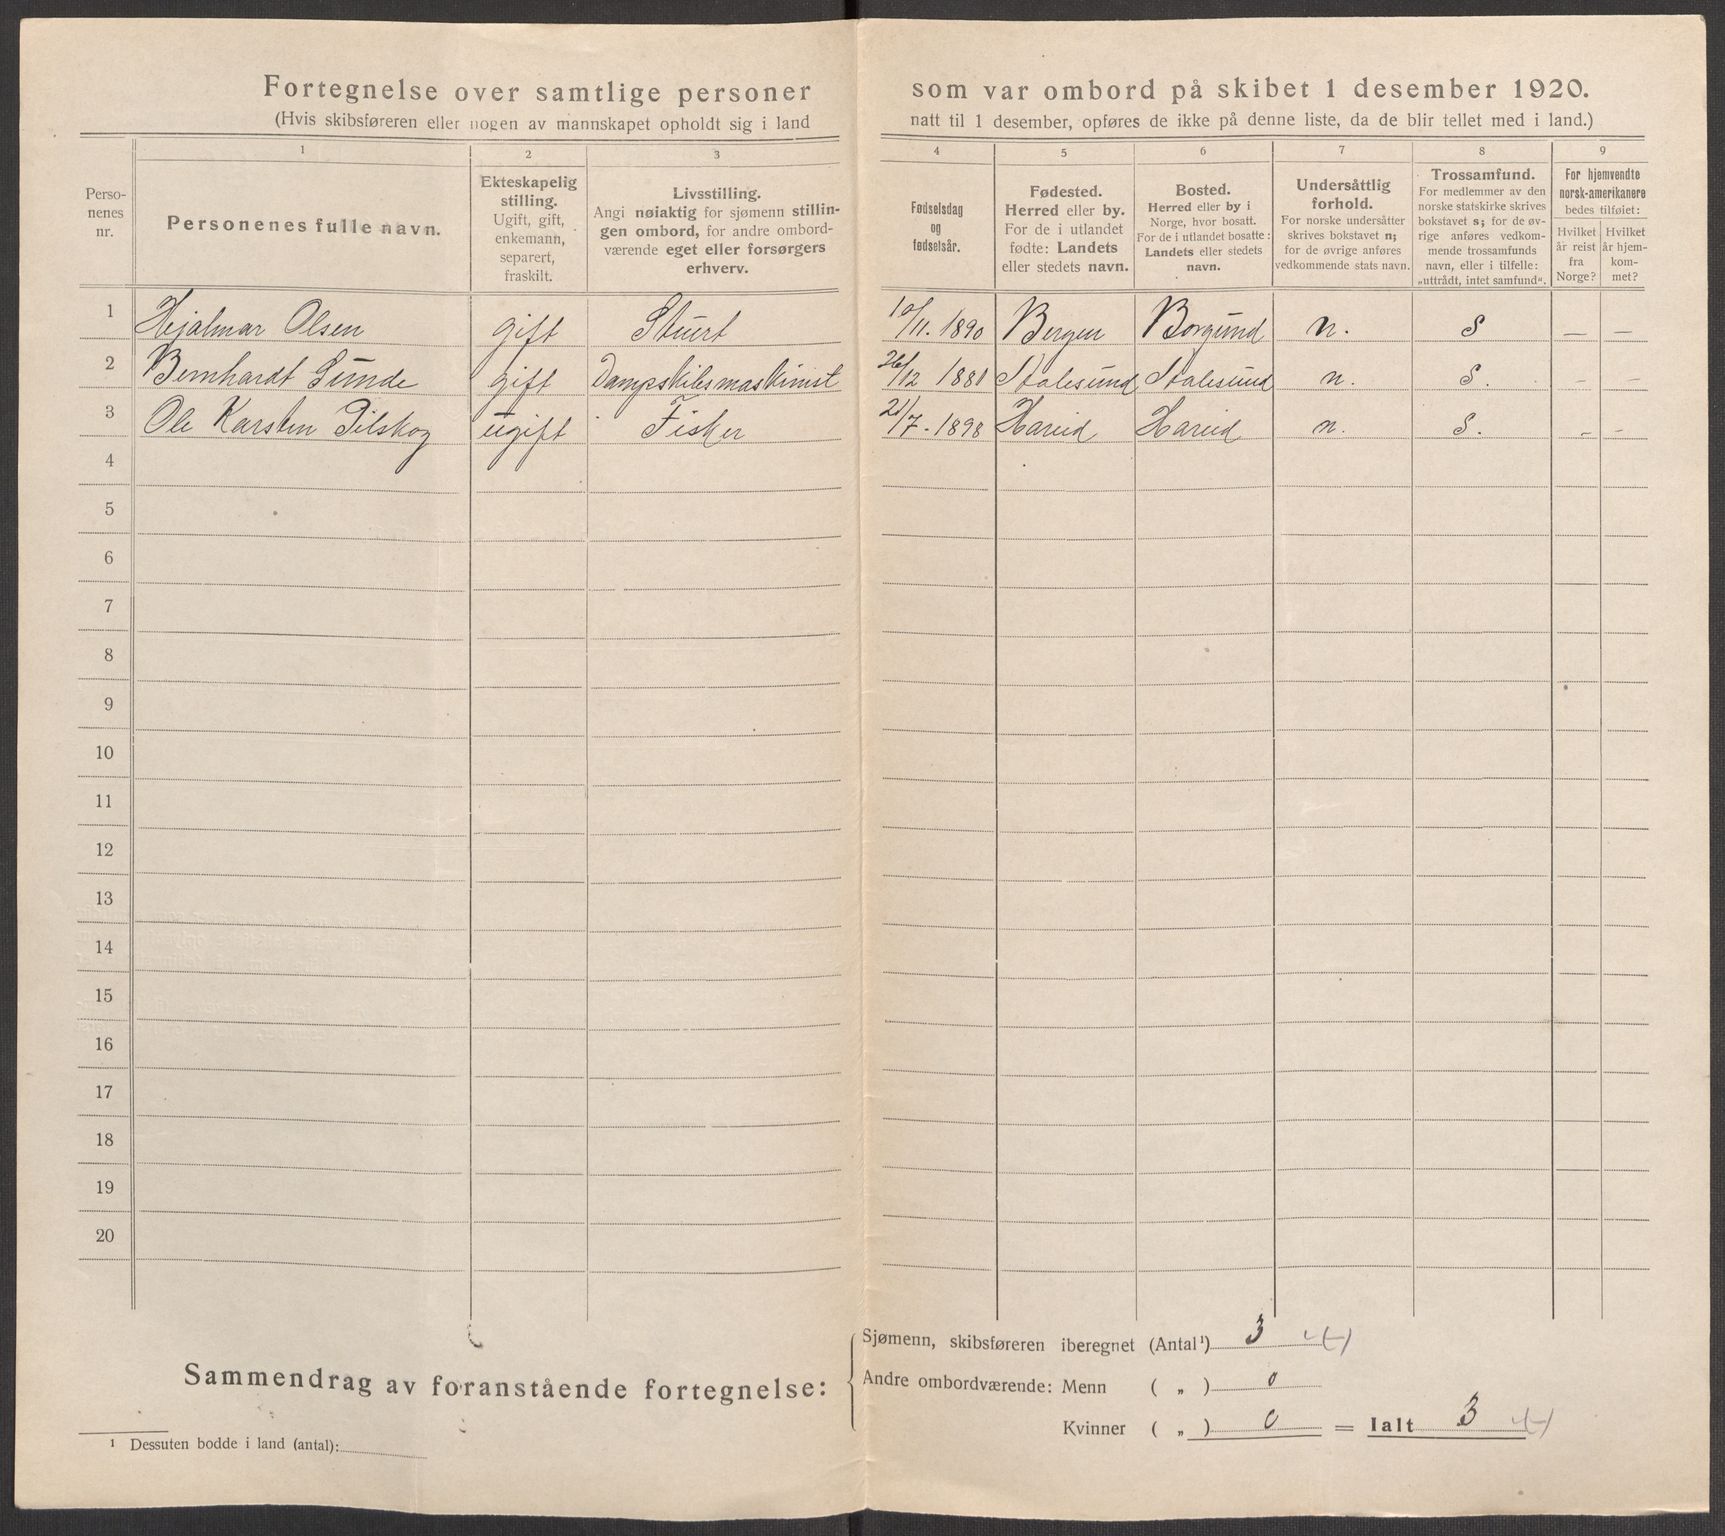 Fortegnelse over samtlige personer som var ombord på skibet 1 desember 1920.
(Hvis skibsføreren eller nogen av mannskapet opholdt sig i land natt til 1 desember, opføres de ikke på denne liste, da de blir tellet med i land.)
1 2 3 4 5 6 7 8 9
Perso-
nenes
nr.
Personenes fulle navn.
Ekteskapelig
stilling.
Ugift, gift,
enkemann,
separert,
fraskilt.
Livsstilling.
Angi nøiaktig for sjømenn stillin-
gen ombord, for andre ombord-
værende eget eller forsørgers
erhverv.
Fødselsdag
og
fødselsår.
Fødested.
Herred eller by.
For de i utlandet
fødte: Landets
eller stedets navn.
Bosted.
Herred eller by i
Norge, hvor bosatt.
For de i utlandet bosatte:
Landets eller stedets
navn.
Undersåttlig
forhold.
For norske undersåtter
skrives bokstavet n;
for de øvrige anføres
vedkommende stats navn.
Trossamfund.
For medlemmer av den
norske statskirke skrives
bokstavet s; for de øv-
rige anføres vedkom-
mende trossamfunds
navn, eller i tilfelle:
„uttrådt, intet samfund“.
For hjemvendte
norsk-amerikanere
bedes tilføiet:
Hvilket
år reist
fra
Norge?
Hvilket
år hjem-
kom-
met?
1 Hjalmar Olsen gift Stuert 10/11. 1890 Bergen Borgund n. S — —
2 Bernhardt Sunde gift Dampskibsmaskinist 26/12 1881 Aalesund Aalesund n. S. - -
3 Ole Karsten Pilskog ugift Fisker 21/7 - 1898 Hareid Hareid n. S. - -
4
5
6
7
8
9
10
11
12
13
14
15
16
17
18
19
20
Sammendrag av foranstående fortegnelse:
Sjømenn, skibsføreren iberegnet (Antal¹) 3
Andre ombordværende: Menn ( „ ) 0
Kvinner ( „ ) 0 = Ialt 3
¹ Dessuten bodde i land (antal):